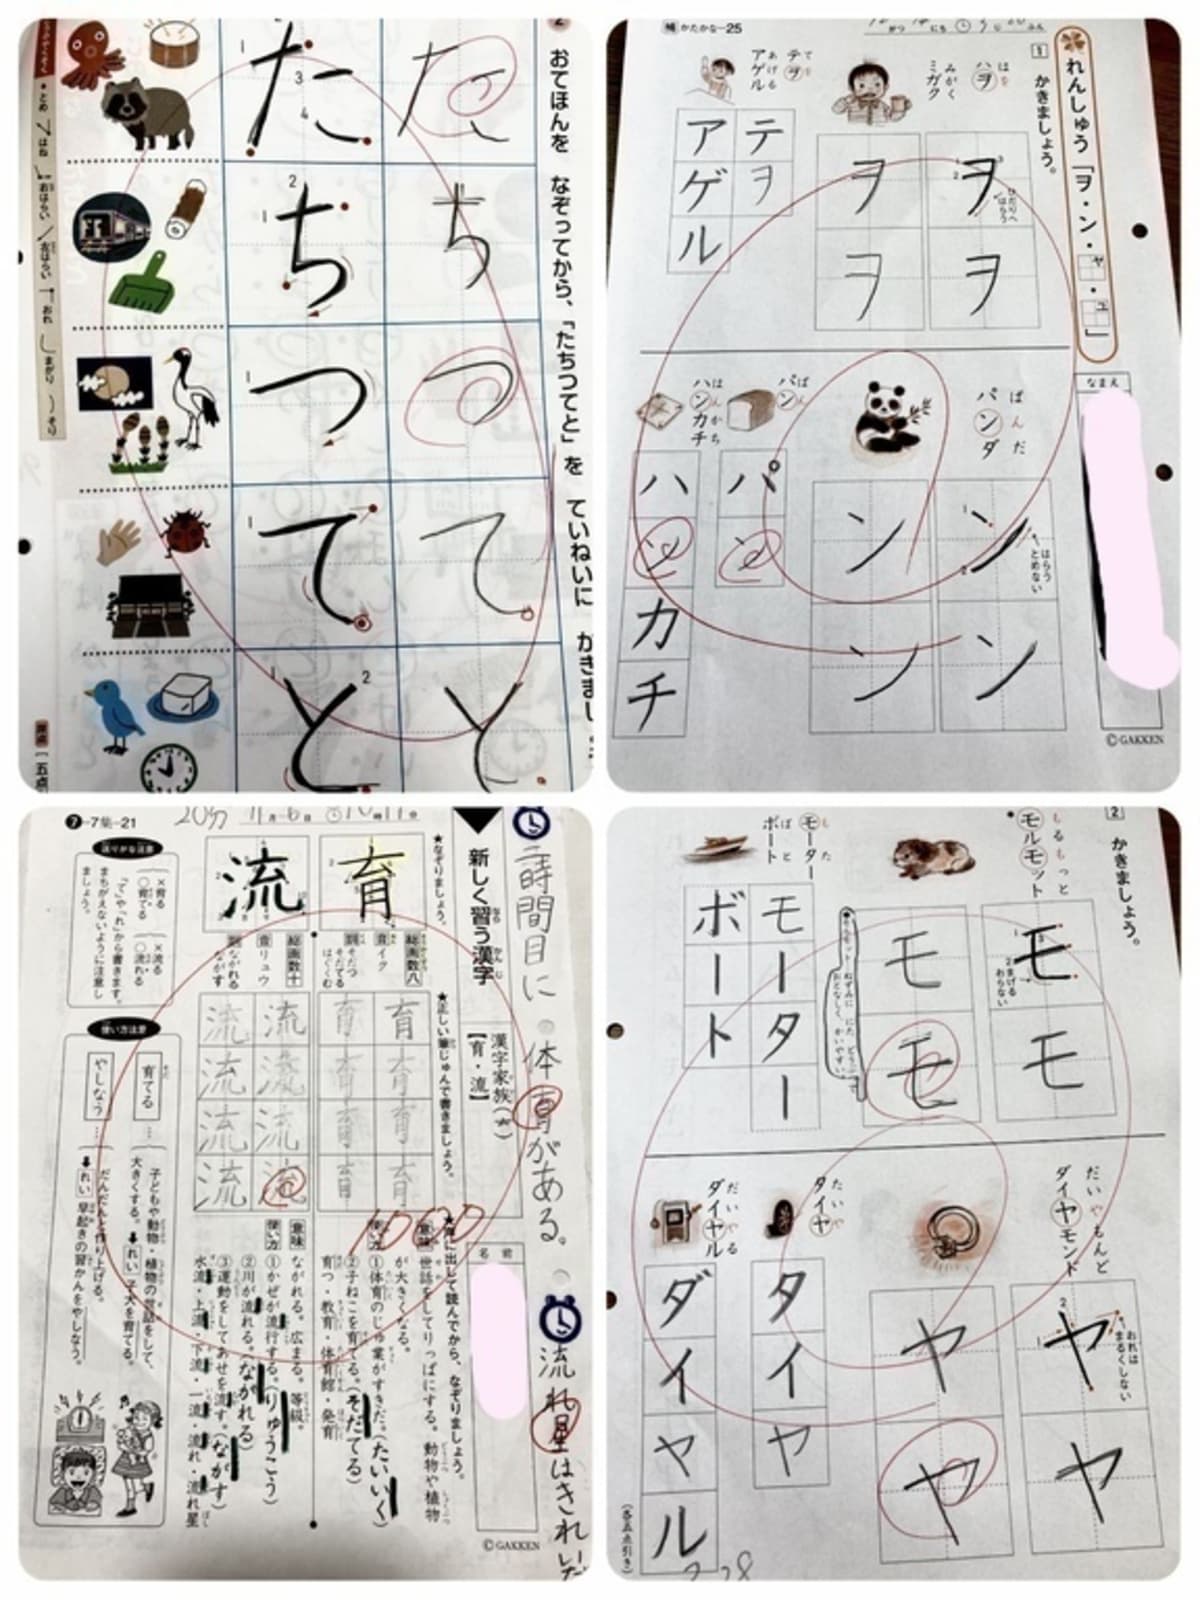 おてほんを なぞってから、「たちつてと」を ていねいに かきまし
た た
ち ち
つ つ
て て
と と
とめ はね
おはらい
右はらい
おれ
まがり
そり
補 かたかな-25
れんしゅう「ヲ・ン・ヤ・ユ」
1 かきましょう。
なまえ
はを
ハヲ
みがく
ミガク
てを
テヲ
あげる
アゲル
ヲ ヲ
ヲ ヲ
ひだりへはらう
テヲ
アゲル
ぱんだ
パンダ
ぱん
パン
はんかち
ハンカチ
ン ン
ン ン
はらう
とめない
パン
ハンカチ
©GAKKEN
7-7集-21
20分 11月6日
新しく習う漢字
漢字家族
【育・流】
二時間目に 体育がある。
流れ星はきれいだ
★なぞりましょう。
育
流
総画数八
音イク
訓そだつ
そだてる
はぐくむ
総画数十
音リュウ
訓ながれる
ながす
★正しい筆じゅんで書きましょう。
育 育
育 育
育 育
育 育
流 流
流 流
流 流
流 流
100
★声に出して読んでから、なぞりましょう。
名前
意味 世話をしてりっぱにする。動物や植物が大きくなる。
使い方 ①体育のじゅ業がすきだ。(たいいく)
②子ねこを育てる。(そだてる)
育つ・教育・体育館・発育
意味 ながれる。広まる。等級。
使い方 ①かぜが流行する。(りゅうこう)
②川が流れる。(ながれる)
③運動をしてあせを流す。(ながす)
水流・上流・下流・一流・流れ・流れ星
送りがな注意
×育る
○育てる
×流る
○流れる
「て」や「れ」から書きます。
まちがえないように注意しましょう。
使い方注意
育てる … 子どもや動物・植物の世話をして、大きくする。
れい 子犬を育てる。
やしなう … だんだんと作り上げる。
れい 早起きの習かんをやしなう。
©GAKKEN
2 かきましょう。
もるもっと
モルモット
もーたー
モーター
ぼーと
ボート
モ モ
モ モ
まげる
おらない
モーター
ボート
だいやもんど
ダイヤモンド
たいや
タイヤ
だいやる
ダイヤル
ヤ ヤ
ヤ ヤ
おれは
まるくしない
タイヤ
ダイヤル
(各五点引き)